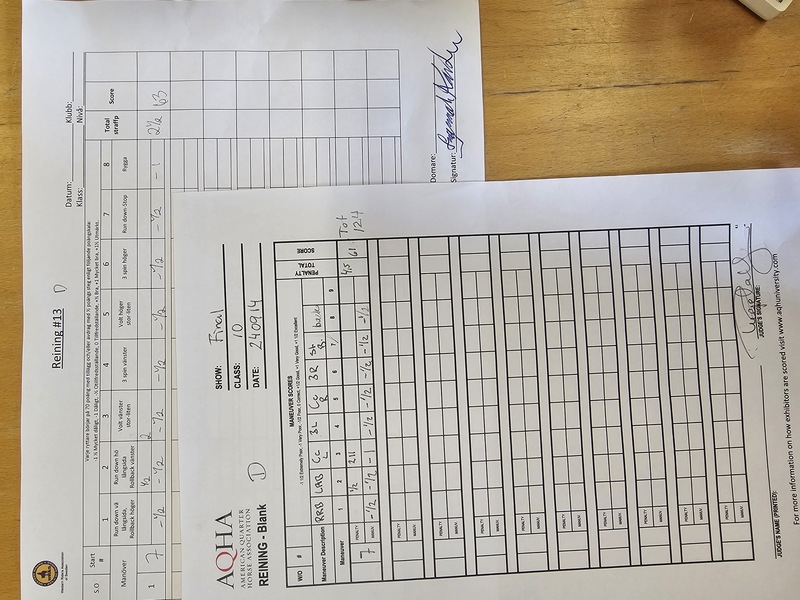 Reining #13 D
Datum: Klubb:
Klass: Nivå:
Varje ryttare börjar på 70 poäng med tillägg och/eller avdrag med ½ poängs steg enligt följande poängskala:
S.O Start # 1 2 3 4 5 6 7 8 Total straffp Score
Manöver Run down vä långsida Rollback höger Run down hö långsida Rollback vänster Volt vänster stor-liten 3 spin vänster Volt höger stor-liten 3 spin höger Run down-Stop Rygga
½ 2
1 7 -½ -½ -½ -½ -½ -½ -½ -1 2½ 63
Domare:
Signatur:
AQHA
AMERICAN QUARTER
HORSE ASSOCIATION
REINING - Blank D
SHOW: Final
CLASS: 10
DATE: 240914
MANEUVER SCORES
-1 1/2 Extremely Poor, -1 Very Poor, -1/2 Poor, 0 Correct, +1/2 Good, +1 Very Good, +1 1/2 Excellent
W/O # PENALTY TOTAL SCORE
Maneuver Description RRB LRB Lc 3L Rc 3R St back
Maneuver 1 2 3 4 5 6 7 8 9 Tot
PENALTY ½ 211 4,5 61 124
7 MANUV. -½ -½ -1 -½ -½ -½ -½ -½
PENALTY
MANUV.
PENALTY
MANUV.
PENALTY
MANUV.
PENALTY
MANUV.
PENALTY
MANUV.
PENALTY
MANUV.
PENALTY
MANUV.
PENALTY
MANUV.
JUDGE'S NAME (PRINTED): JUDGE'S SIGNATURE:
For more information on how exhibitors are scored visit www.aqhuniversity.com